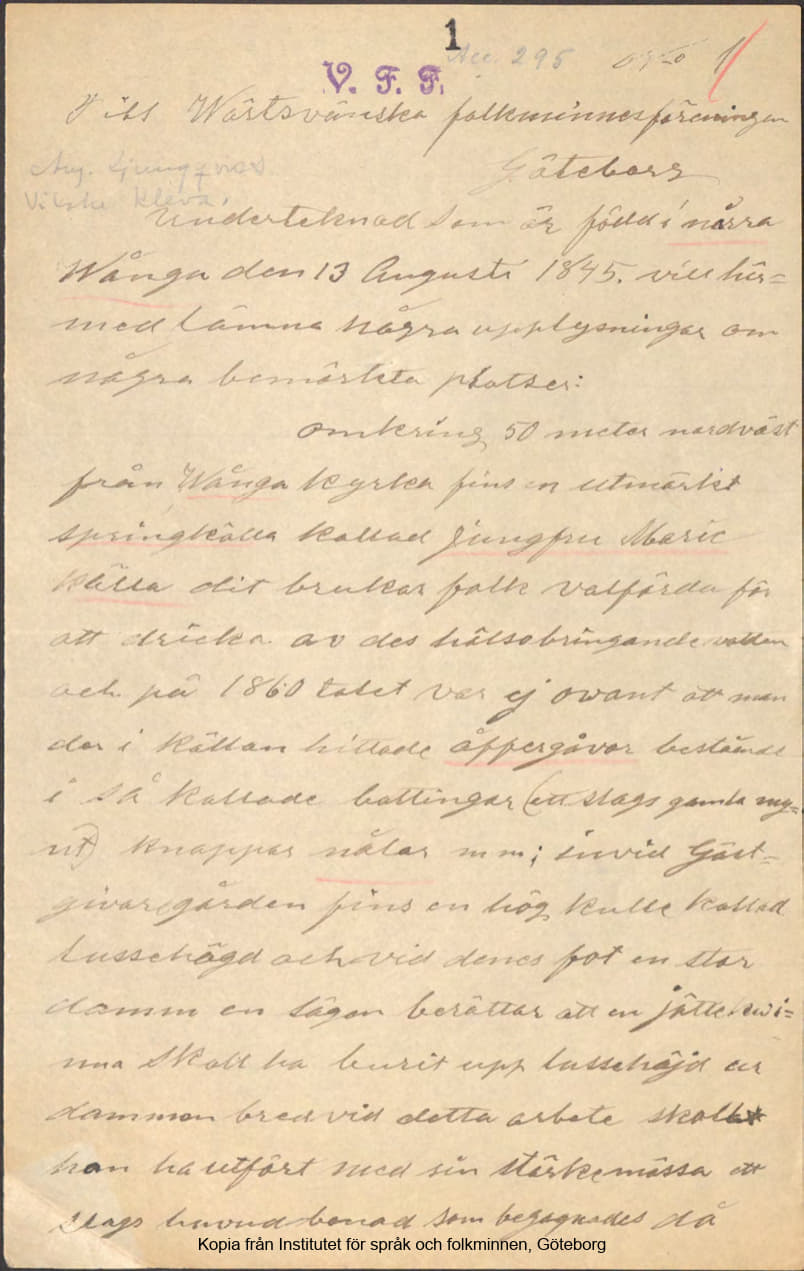 1
Acc. 295
V. F. F.
Till Wästsvänska folkminnesföreningen
Göteborg
Aug. Ljungqvist
Vilske Kleva.
Underteknad som är född i norra
Wånga den 13 Augusti 1845. vill här=
med lämna några upplysningar om
några bemärkta platser:
omkring 50 meter nordväst
från Wånga kyrka fins en utmärkt
springkälla kallad jungfru Marie
källa dit brukar folk valfärda för
att dricka av des hälsobringande vatten
och på 1860 talet var ej ovant att man
der i källan hittade åffergåvor bestående
i så kallade battingar (ett slags gamla my=
nt) knappar nålar m m; invid Gäst=
givaregården fins en hög kulle kallad
lussehögd och vid denes fot en stor
damm en sägen berättar att en jättekvi=
nna skall ha burit upp lussehöjd ur
dammen bred vid detta arbete skall
hon ha utfört med sin stärkemössa ett
slags huvud bonad som begagnades då
Kopia från Institutet för språk och folkminnen, Göteborg